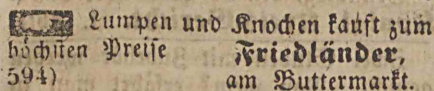 Lumpen und Knochen kauft zum
höchsten Preise Friedländer,
594) am Buttermarkt.